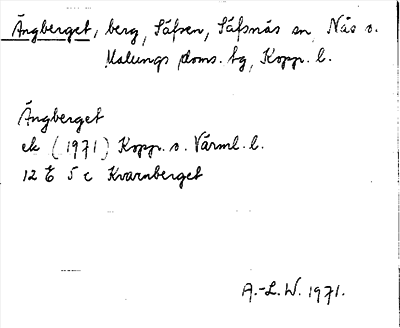 Ängberget, berg, Säfsen, Säfsnäs sn, Näs o.
Malungs doms. tg, Kopp. l.
Ängberget
ek (1971) Kopp. o. Värml. l.
12 E 5 c Kvarnberget
A.-L.W. 1971.